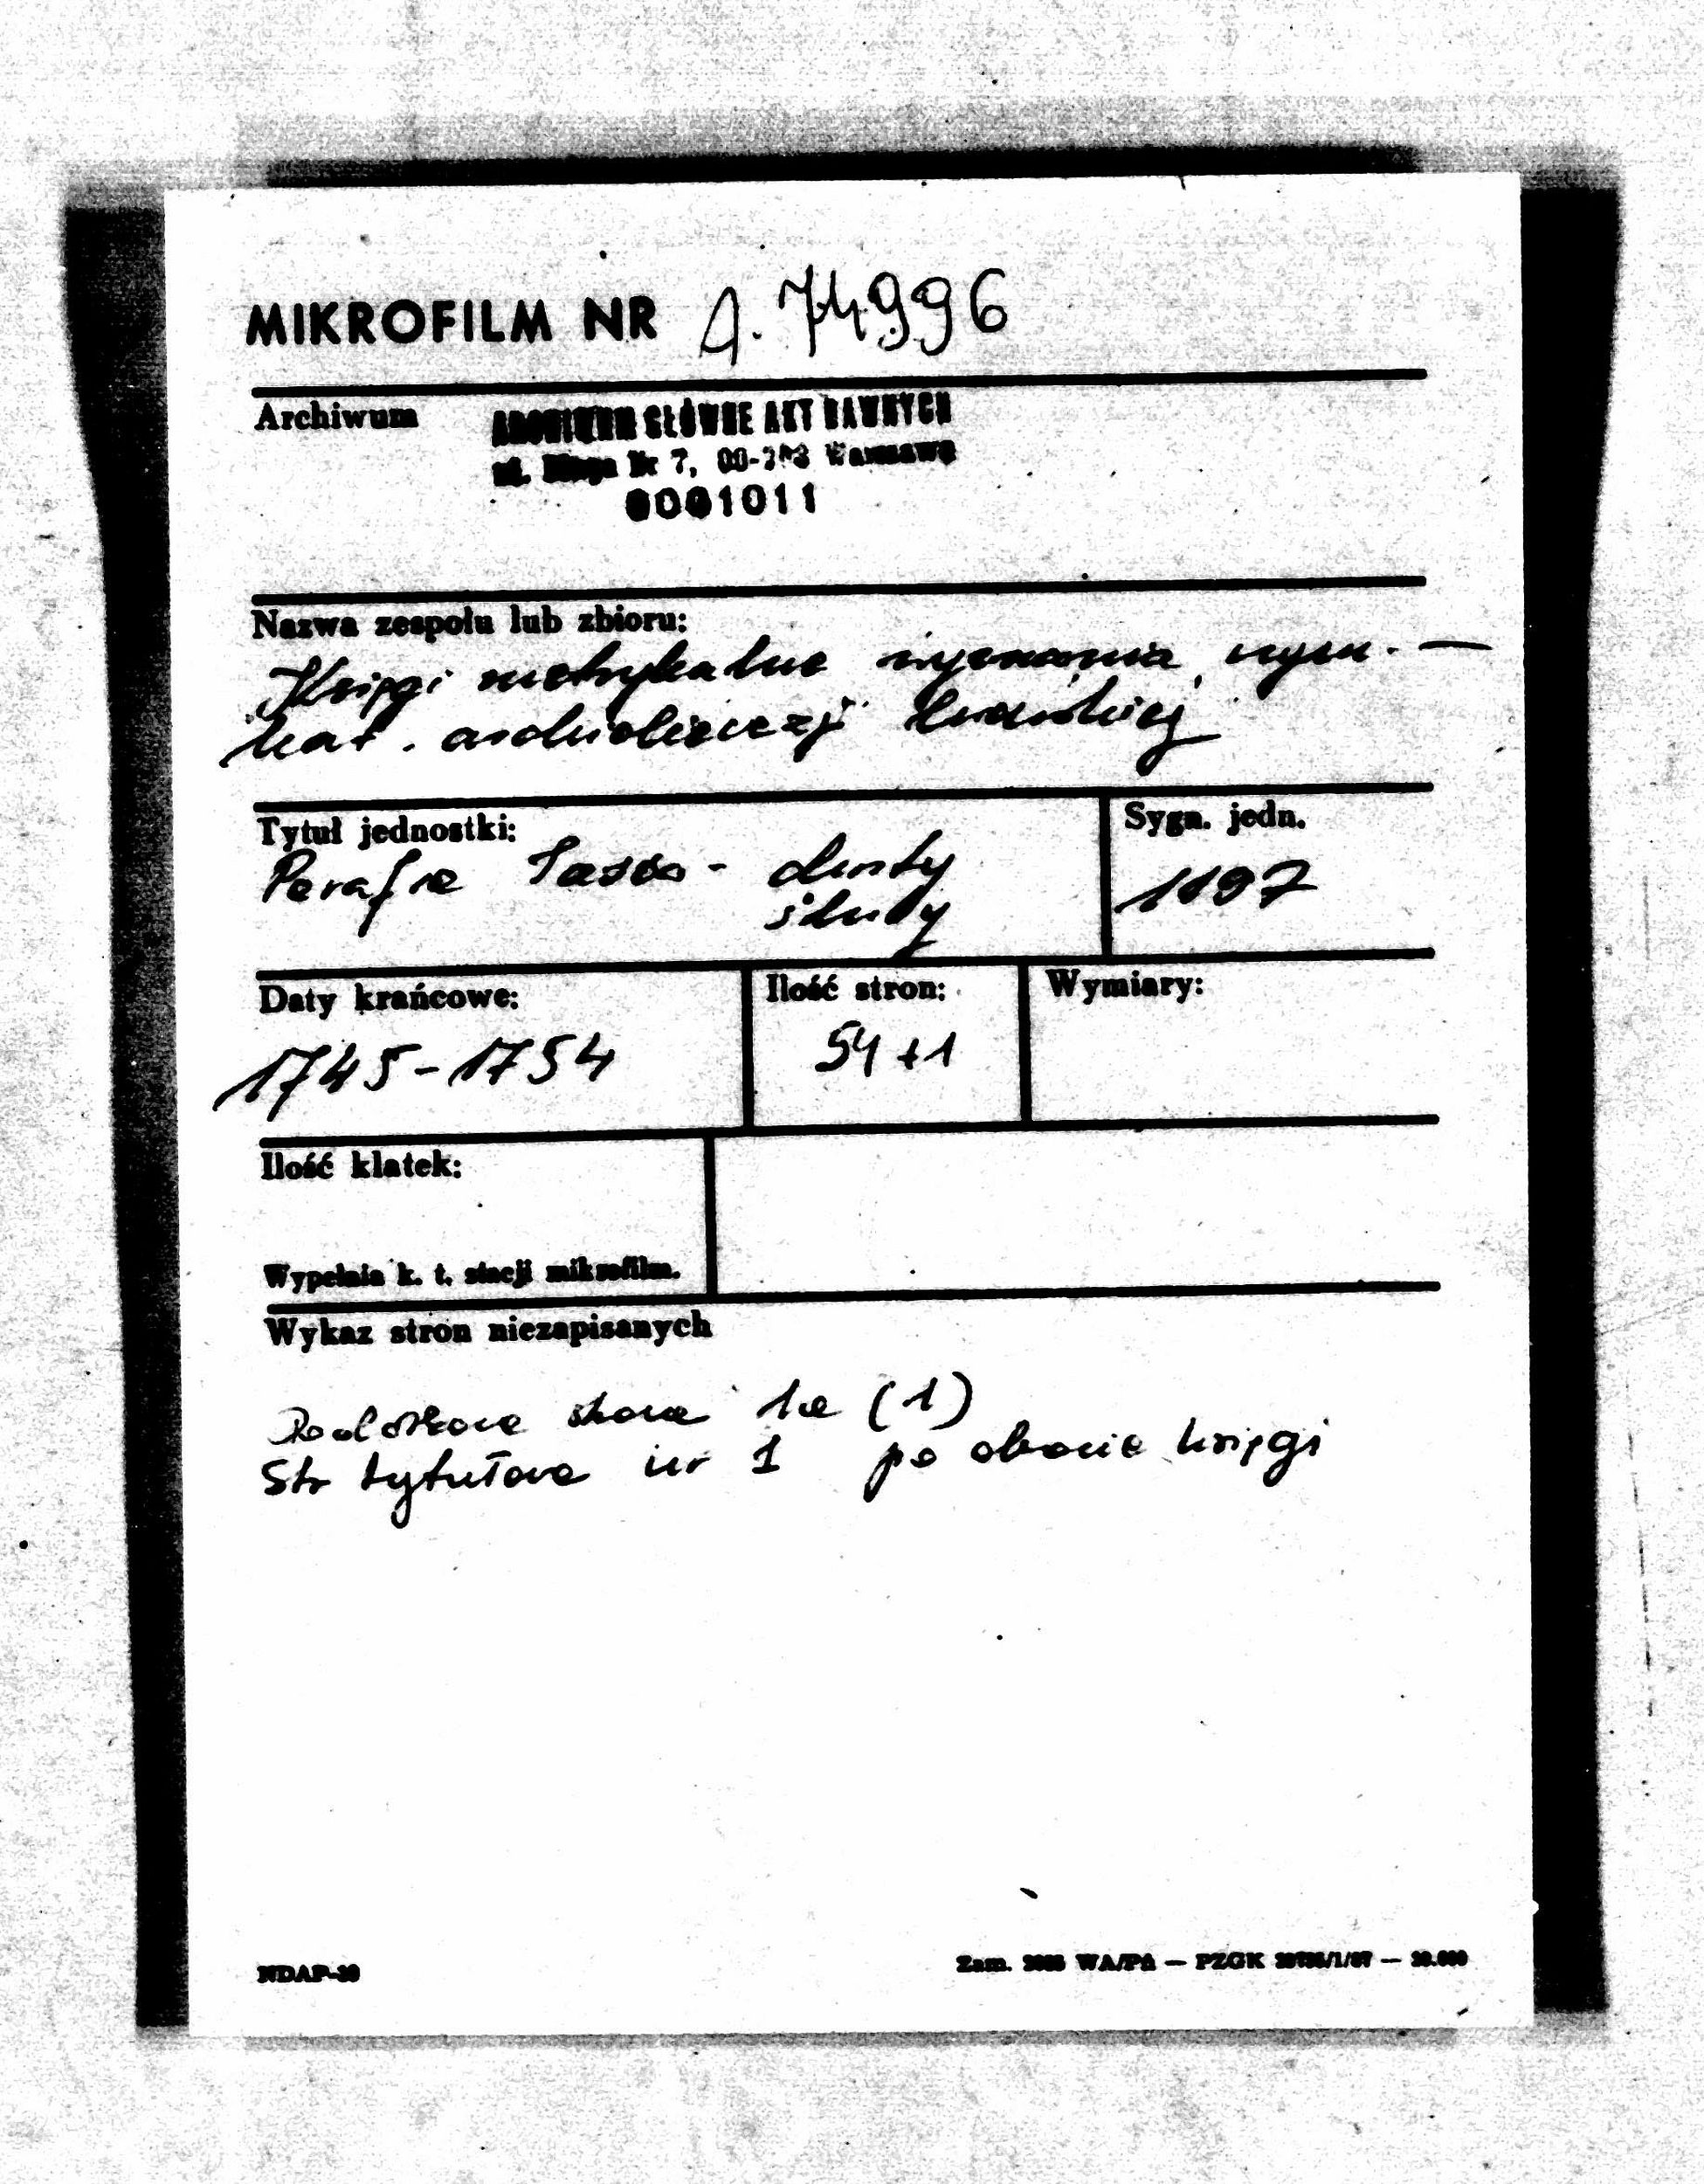 MIKROFILM NR A. 74996
Archiwum ARCHIWUM GŁÓWNE AKT DAWNYCH
ul. Długa Nr 7, 00-263 Warszawa
0001011
Nazwa zespołu lub zbioru:
Księgi metrykalne wyznania rzym. —
kat. archidiecezji lwowskiej
Tytuł jednostki: Sygn. jedn.
Parafia chrzty 1197
śluby
Daty krańcowe: Ilość stron: Wymiary:
1745-1754 54+1
Ilość klatek:
Wypełnia k. t. stacji mikrofilm.
Wykaz stron niezapisanych
Dodatkowa strona 1a (1)
Str tytułowa nr 1 po obronie księgi
NDAP-
Zam. WA/PA — PZGK